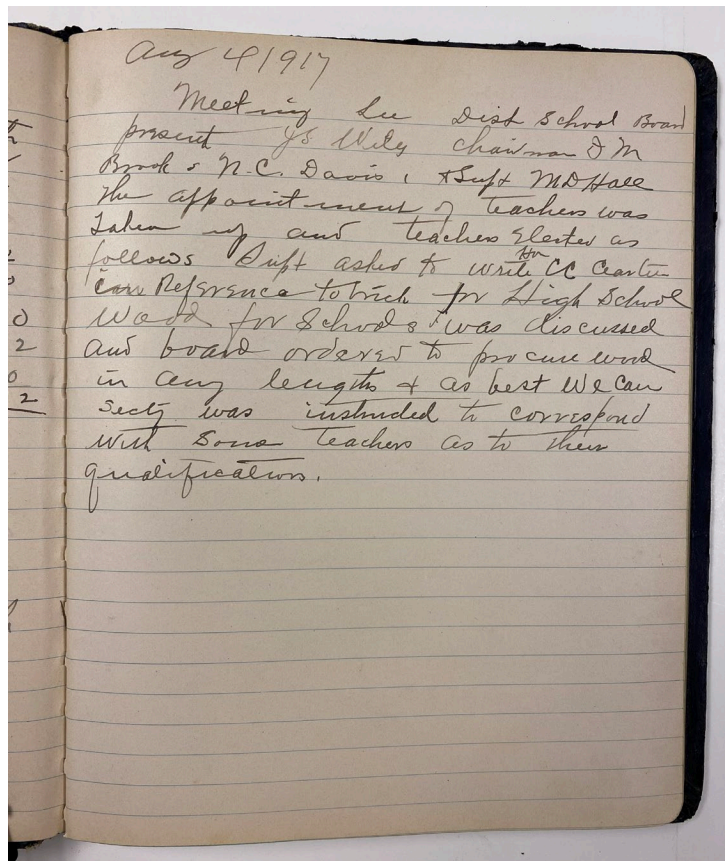 Aug 4 1917
Meeting Lee Dist School Board
present JS Wiley chairman J M
Brooks N.C. Davis, & Supt MD Hall
The appointment of teachers was
Taken up and teachers Elected as
follows Supt asked to write Hon CC Carlin
in Reference to brick for High School
Wood for Schools was discussed
and board ordered to procure wood
in any lengths & as best We can
Secty was instructed to correspond
with some teachers as to their
qualifications.
0
2
0
2